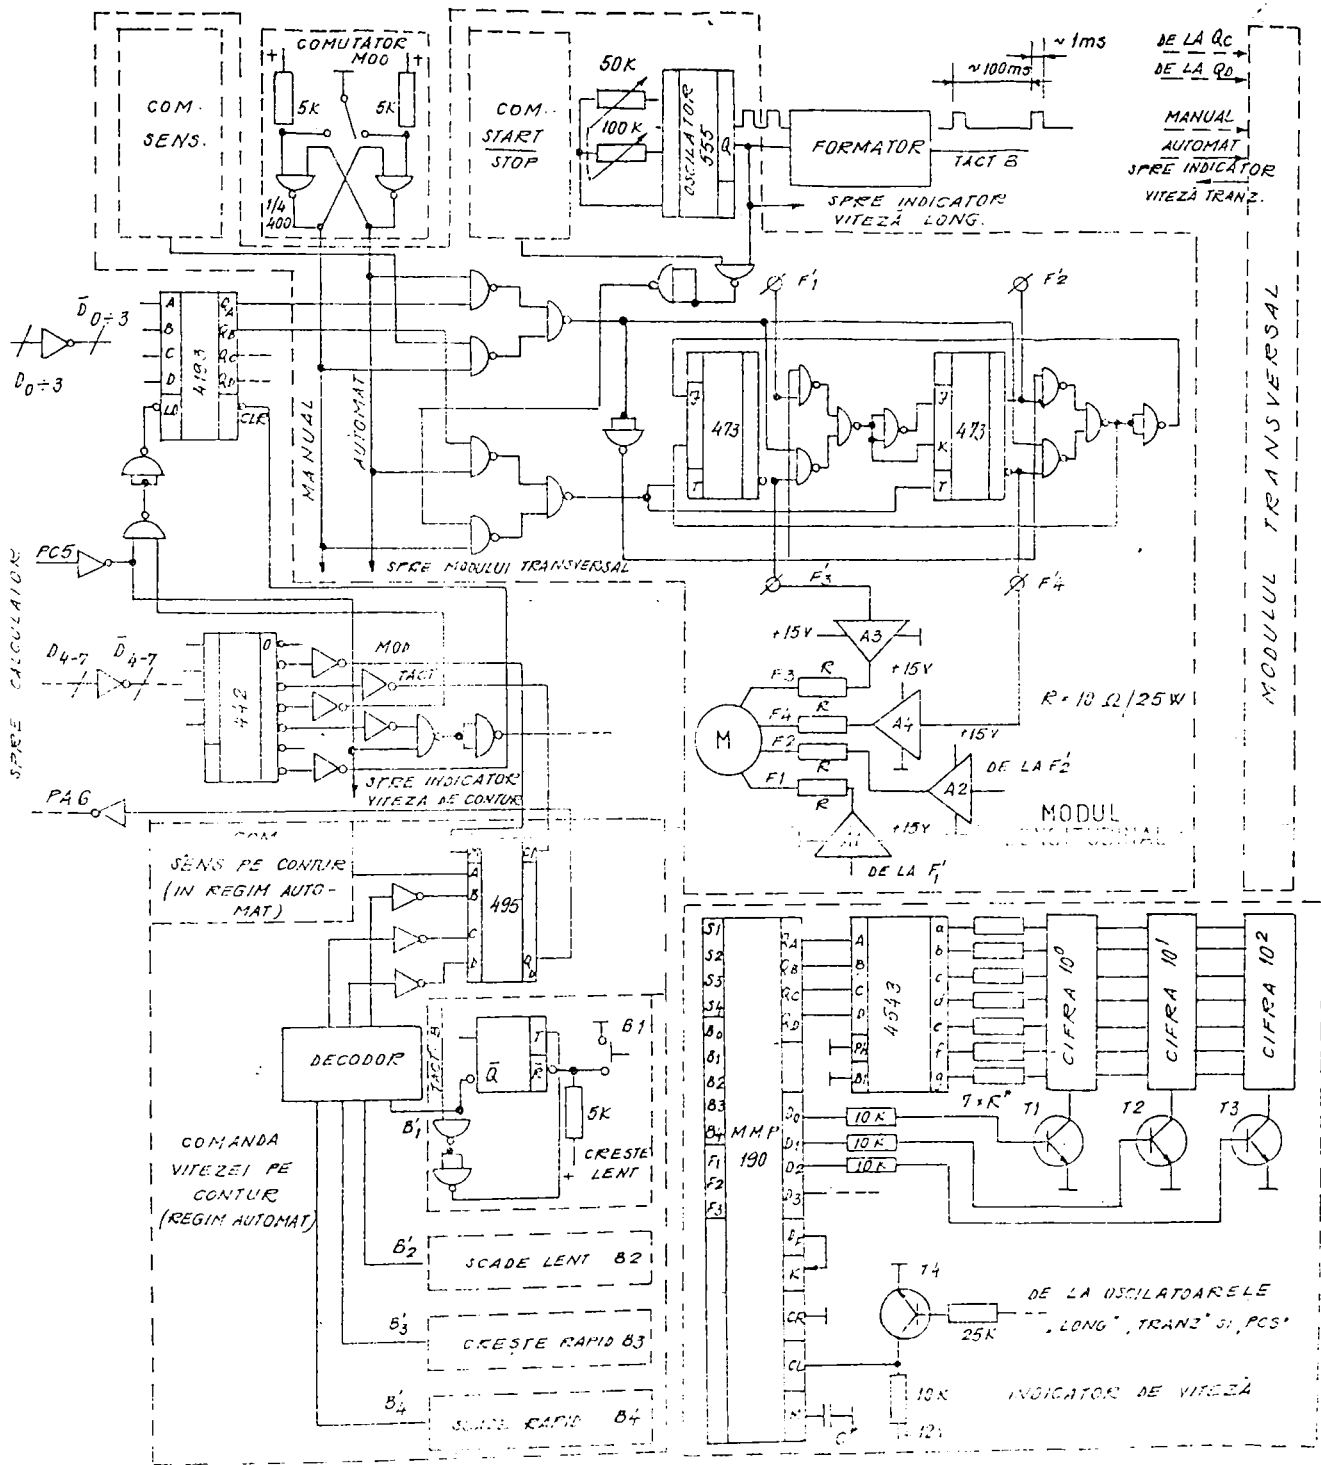 COM.
SENS.
COMUTATOR
MOD
+
+
5K
5K
1/4
400
COM
START
STOP
50K
100K
OSCILATOR
555
Q
FORMATOR
TACT B
~100ms
~1ms
SPRE INDICATOR
VITEZĂ LONG.
DE LA QC
DE LA QD
MANUAL
AUTOMAT
SPRE INDICATOR
VITEZĂ TRANZ.
MODULUL TRANSVERSAL
D̄0÷3
D0÷3
A
B
C
D
LD
4193
QA
QB
QC
QD
CLR
MANUAL
AUTOMAT
SPRE MODULUI TRANSVERSAL
F'1
F'2
J
T
473
J
K
T
473
F'3
F'4
SPRE CALCULATOR
PC5
D4-7
D̄4-7
442
0
MOD
TACT
SPRE INDICATOR
VITEZA DE CONTUR
PA6
+15V
A3
+15V
A4
+15V
A2
+15V
A1
F3
R
F4
R
F2
R
F1
R
M
R = 10 Ω/25W
DE LA F'2
DE LA F'1
MODUL
LONGITUDINAL
COM
SENS PE CONTUR
(IN REGIM AUTO-
MAT)
A
B
C
D
495
QD
DECODOR
TACT B
Q̄
T
B1
5K
+
CREȘTE
LENT
B'1
COMANDA
VITEZEI PE
CONTUR
(REGIM AUTOMAT)
B'2
SCADE LENT B2
B'3
CREȘTE RAPID B3
B'4
SCADE RAPID B4
S1
S2
S3
S4
B0
B1
B2
B3
B4
F1
F2
F3
MMP
190
QA
QB
QC
QD
D0
D1
D2
D3
DF
K
CR
CL
A
B
C
D
PH
BI
4543
a
b
c
d
e
f
g
7×R*
CIFRA 10⁰
CIFRA 10¹
CIFRA 10²
T1
T2
T3
10K
10K
10K
T4
25K
10K
-12V
C*
DE LA OSCILATOARELE
„LONG", „TRANZ" SI „PC5"
INDICATOR DE VITEZĂ